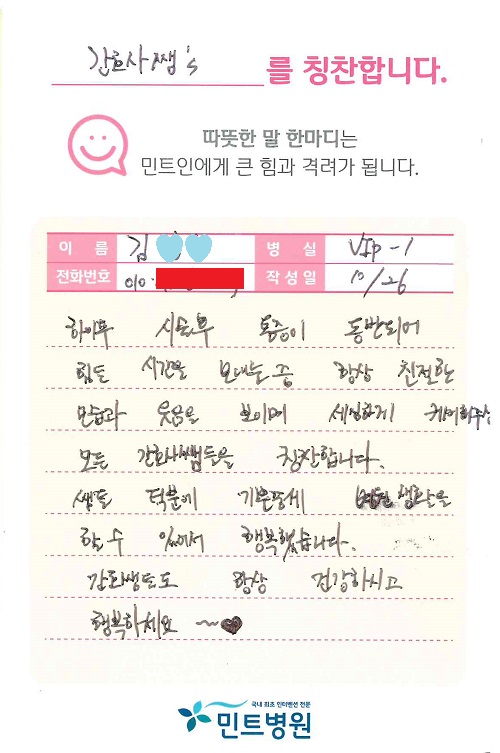 간호사쌤's 를 칭찬합니다.
따뜻한 말 한마디는
민트인에게 큰 힘과 격려가 됩니다.
이 름 김 병 실 VIP-1
전화번호 010 작성일 10/26
하이푸 시술후 통증이 동반되어
힘든 시간을 보내는 중 항상 친절한
모습과 웃음을 보이며 세심하게 케어해주신
모든 간호사쌤들을 칭찬합니다.
쌤들 덕분에 병원생활을
할 수 있어서 행복했습니다.
간호쌤들도 항상 건강하시고
행복하세요 ~♥
국내 최초 인터벤션 전문
민트병원